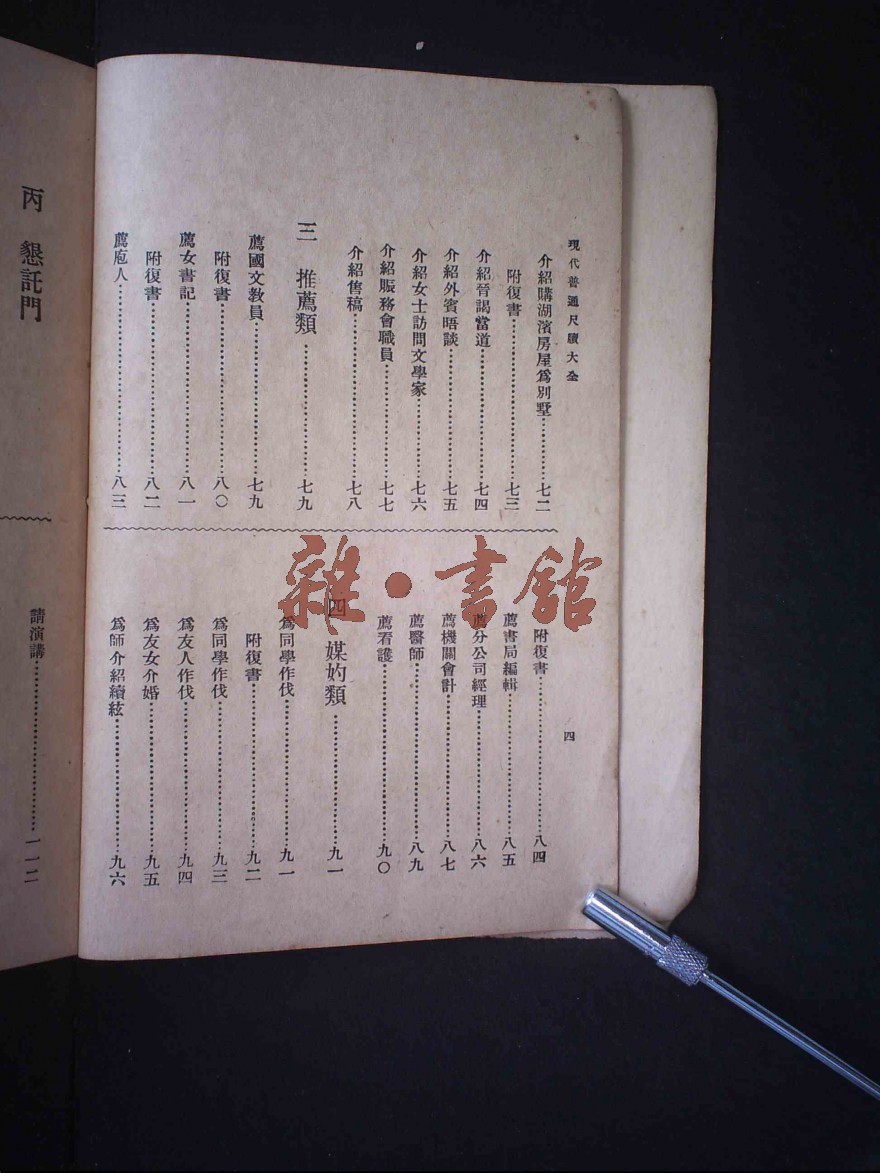 現代普通尺牘大全
介紹購湖濱房屋爲別墅…………七二
附復書…………七三
介紹晉謁當道…………七四
介紹外賓晤談…………七五
介紹女士訪問文學家…………七六
介紹賑務會職員…………七七
介紹售稿…………七八
三 推薦類…………七九
薦國文教員…………七九
附復書…………八〇
薦女書記…………八一
附復書…………八二
薦庖人…………八三
四
附復書…………八四
薦書局編輯…………八五
薦分公司經理…………八六
薦機關會計…………八七
薦醫師…………八九
薦看護…………九〇
四 媒妁類…………九一
爲同學作伐…………九一
附復書…………九二
爲同學作伐…………九三
爲友人作伐…………九四
爲友女介婚…………九五
爲師介紹續絃…………九六
丙 懇託門
請演講…………一一二
雜·書館